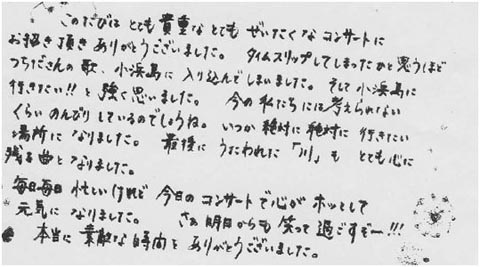 このたびは とても貴重なとても ぜいたくな コンサートに
お招き頂き ありがとうございました。 タイムスリップしてしまったかと思うほど
つちださんの歌、小浜島に 入り込んでしまいました。 そして小浜島に
行きたい!! と強く思いました。 今の私たちには考えられない
くらい のんびりしているのでしょうね。 いつか絶対に絶対に 行きたい
場所に なりました。 最後に うたわれた「川」も とても心に
残る曲となりました。
毎日毎日 忙しいけれど 今日のコンサートで心が ホッとして
元気になりました。 さぁ明日からも 笑って過ごすぞー!!!
本当に 素敵な時間を ありがとうございました。